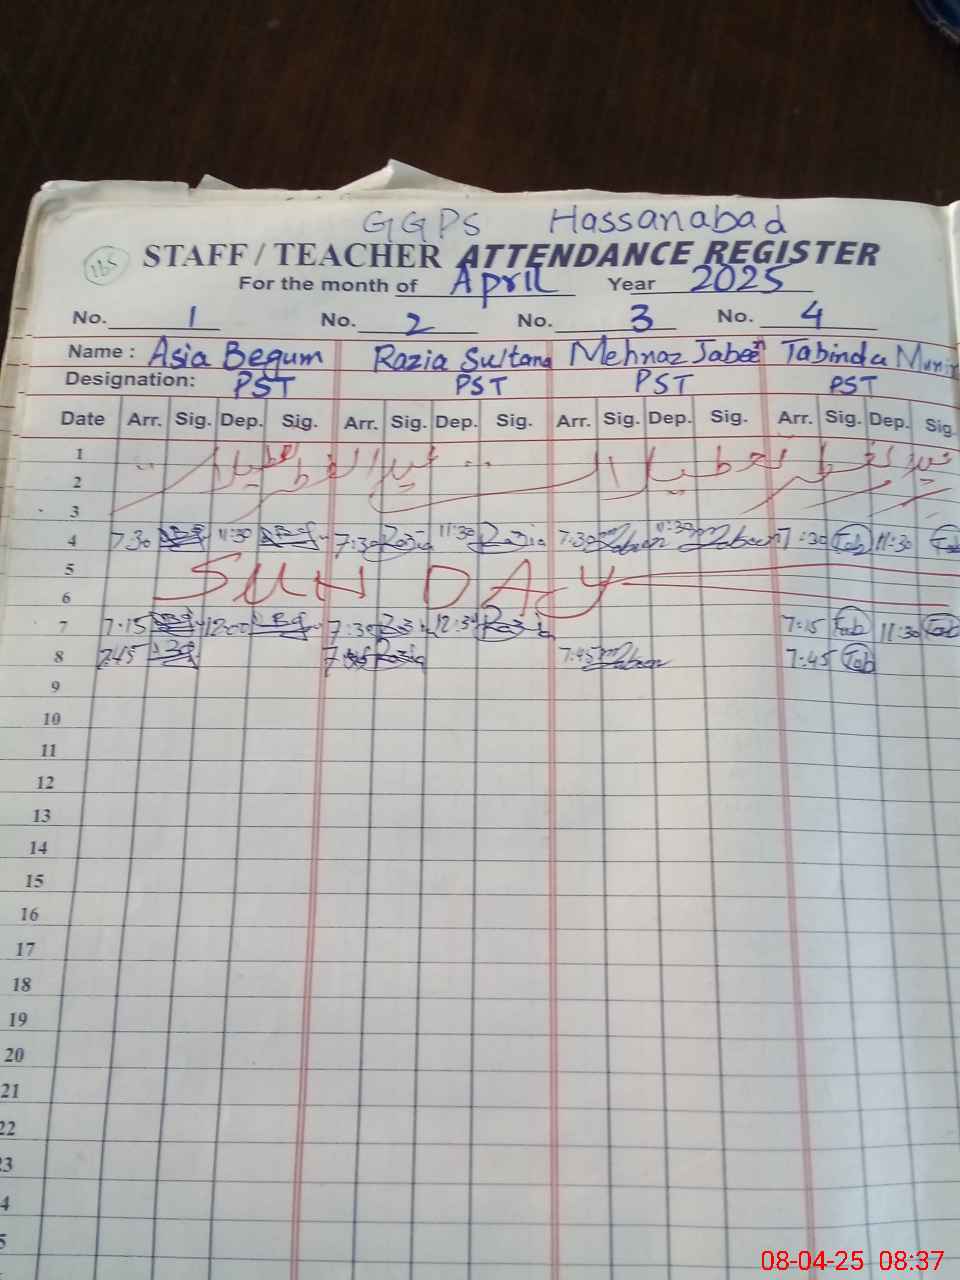 GGPS Hassanabad
165
STAFF / TEACHER ATTENDANCE REGISTER
For the month of April Year 2025
No. 1 No. 2 No. 3 No. 4
Name : Asia Begum Razia Sultana Mehnaz Jabeen Tabinda Munir
Designation: PST PST PST PST
Date Arr. Sig. Dep. Sig. Arr. Sig. Dep. Sig. Arr. Sig. Dep. Sig. Arr. Sig. Dep. Sig.
1
2 عید الفطر
3
4 7:30 11:30 7:30 Razia 11:30 Razia 7:30 Jabeen 11:30 Jabeen 7:30 Tab 11:30 Tab
5
SUNDAY
6
7 7:15 12:00 7:30 Razia 12:30 Razia 7:15 Tab 11:30 Tab
8 7:45 Razia 7:45 Jabeen 7:45 Tab
9
10
11
12
13
14
15
16
17
18
19
20
21
22
23
4
5
08-04-25 08:37